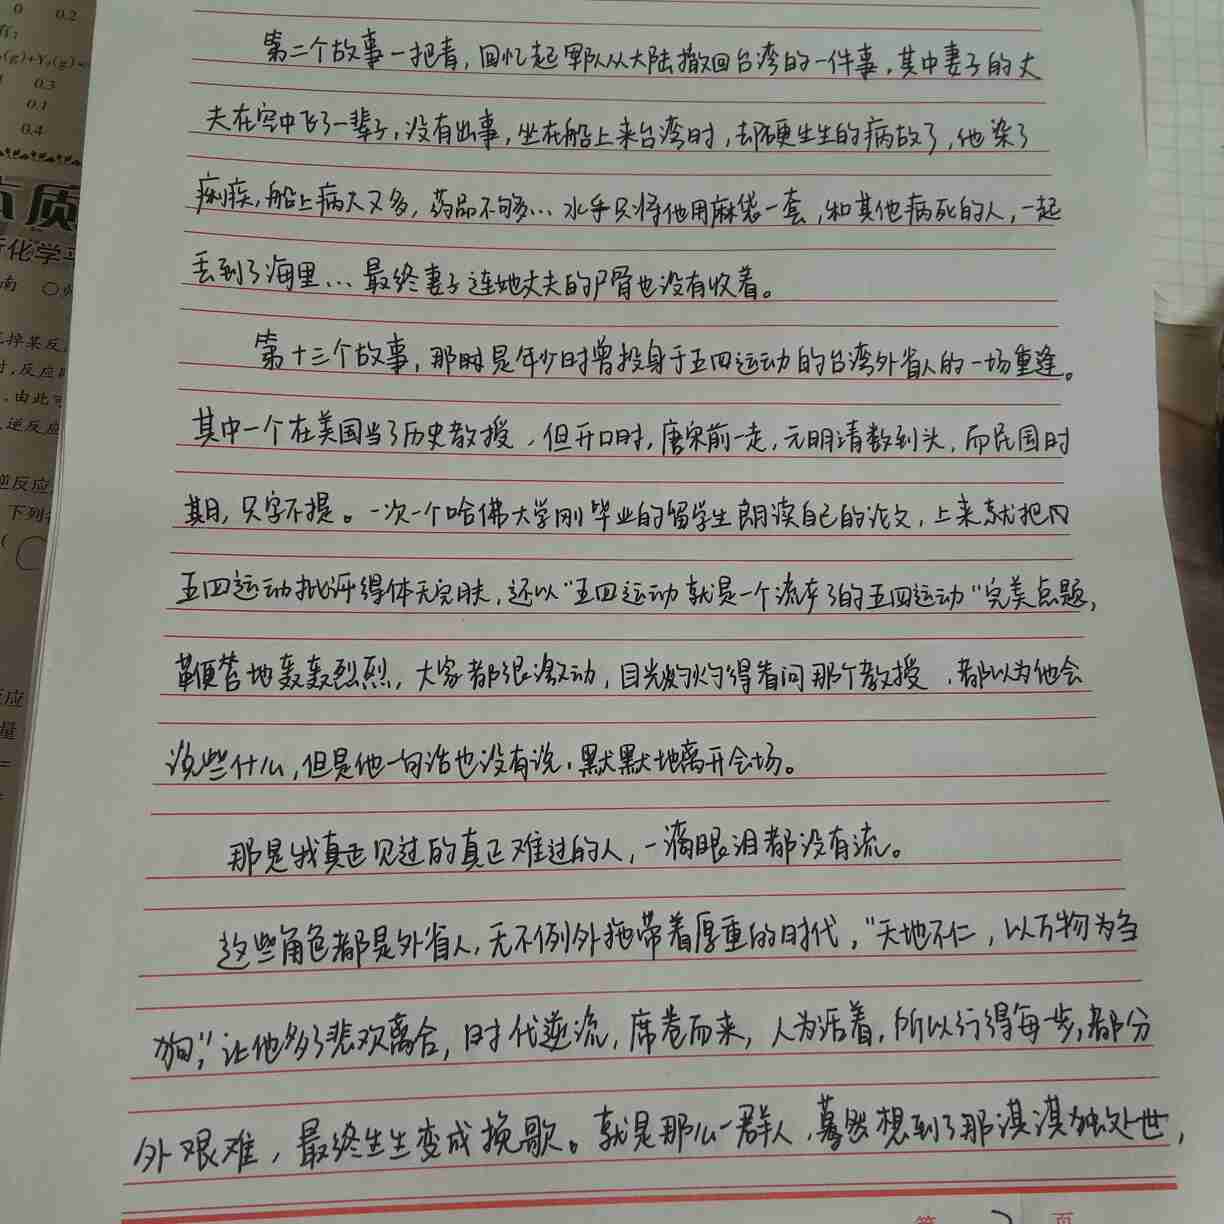 第二个故事一把青，回忆起军队从大陆撤回台湾的一件事，其中妻子的丈
夫在空中飞了一辈子，没有出事，坐在船上来台湾时，却硬生生的病故了，他染了
痢疾，船上病人又多，药品不够…水手只将他用麻袋一套，和其他病死的人，一起
丢到了海里…最终妻子连她丈夫的尸骨也没有收着。
第十三个故事，那时是年少时曾投身于五四运动的台湾外省人的一场重逢。
其中一个在美国当了历史教授，但开口时，唐宋前一走，元明清数到头，而民国时
期，只字不提。一次一个哈佛大学刚毕业的留学生朗读自己的论文，上来就把
五四运动批评得体无完肤，还以“五四运动就是一个流产了的五四运动”完美点题，
鞭笞地轰轰烈烈，大家都很激动，目光灼灼得看问那个教授，都以为他会
说些什么，但是他一句话也没有说，默默地离开会场。
那是我真正见过的真正难过的人，一滴眼泪都没有流。
这些角色都是外省人，无不例外拖带着厚重的时代，“天地不仁，以万物为刍
狗”，让他多了悲欢离合，时代逆流，席卷而来，人为活着，所以行得每一步，都分
外艰难，最终生生变成挽歌。就是那么一群人，蓦然想到了那淇淇独处世，
0 0.2
0.3
0.1
0.4
质
化学平
南
掉某反
时，反应
由此可
逆反应
逆反应
下列
应
量
第 2 页